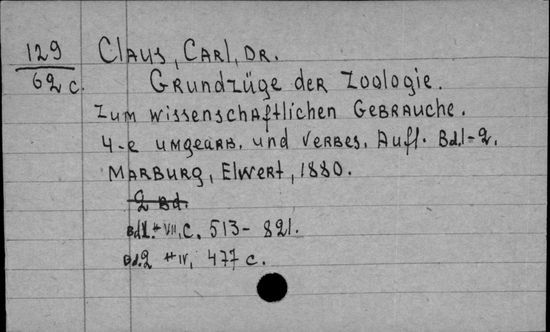 129
62 c.
Claus, Carl, Dr.
Grundzüge der Zoologie.
Zum wissenschaftlichen Gebrauche.
4-e umgearb. und verbes. Aufl. Bd. 1-2.
Marburg, Elwert, 1880.
2 Bd.
Bd 1. * VII, c. 513- 821.
Bd. 2 * IV, 477 c.